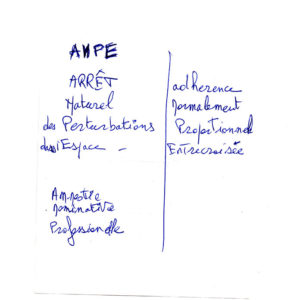 ANPE
ARRÊT
Naturel
des Perturbations
dans l'Espace -
Amnistie
nominative
Professionelle
adherence
Normalement
Proportionnelle
Entrecroisée